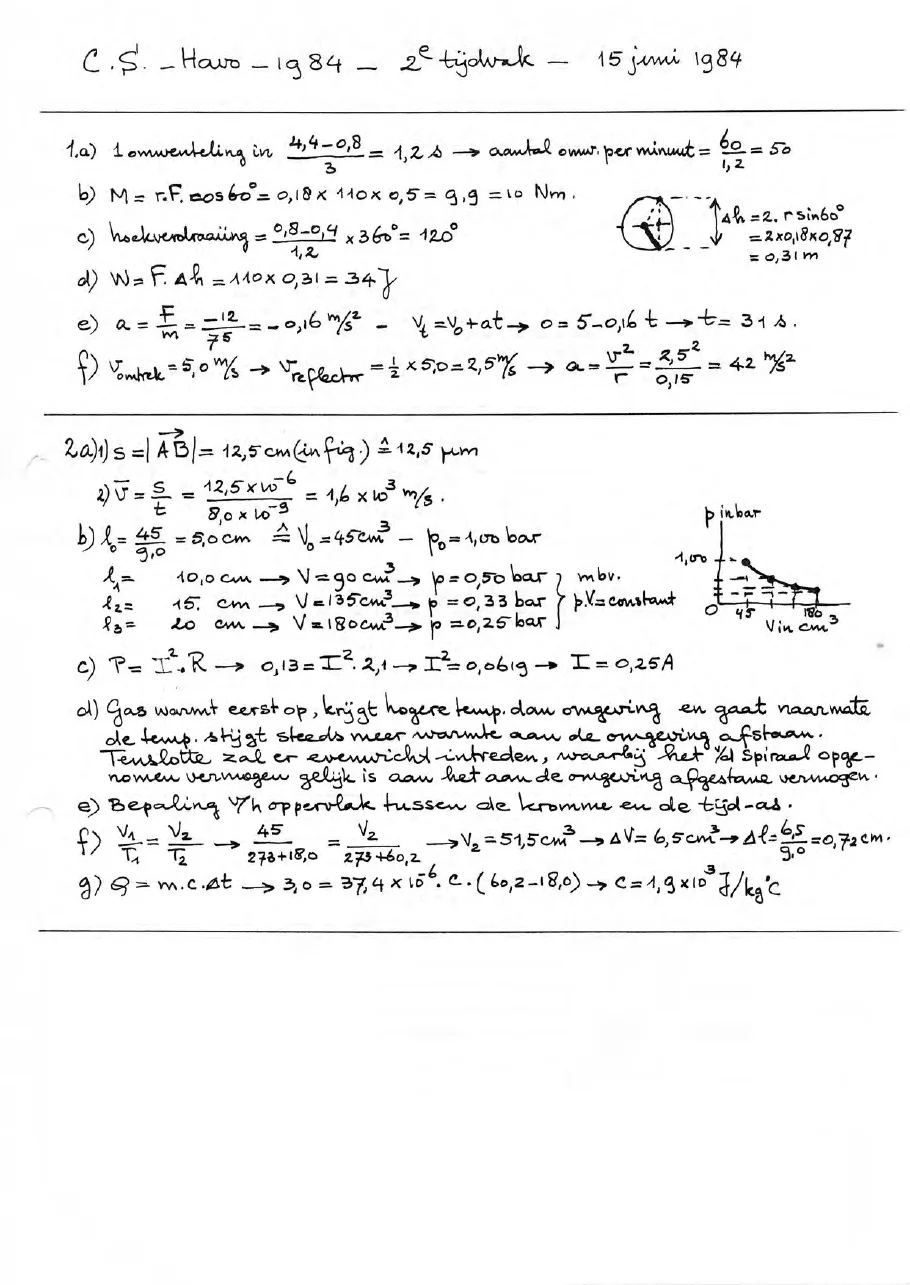 C.S. - Havo - 1984 - 2e tijdvak - 15 juni 1984
1.a) 1 omwenteling in (4,4-0,8)/3 = 1,2 s → aantal omw. per minuut = 60/1,2 = 50
b) M = r.F.cos60° = 0,18 x 110 x 0,5 = 9,9 = 10 Nm.
Δh = 2. r sin60°
= 2x0,18x0,87
= 0,31 m
c) hoekverdraaiing = (0,8-0,4)/1,2 x 360° = 120°
d) W = F. Δh = 110 x 0,31 = 34 J
e) a = F/m = -12/75 = -0,16 m/s² - Vt = V0 + at → 0 = 5-0,16 t → t = 31 s.
f) Vomtrek = 5,0 m/s → Vreflector = ½ x 5,0 = 2,5 m/s → a = v²/r = 2,5²/0,15 = 42 m/s²
2a)1) s = |AB| = 12,5 cm (in fig.) ≙ 12,5 μm
2) v̅ = s/t = 12,5 x 10⁻⁶/8,0 x 10⁻⁹ = 1,6 x 10³ m/s.
b) l₀ = 45/9,0 = 5,0 cm ≙ V₀ = 45 cm³ - p₀ = 1,00 bar
l₁ = 10,0 cm → V = 90 cm³ → p = 0,50 bar
l₂ = 15. cm → V = 135 cm³ → p = 0,33 bar
l₃ = 20 cm → V = 180 cm³ → p = 0,25 bar
} mbv.
p.V = constant
p in bar
1,00
0 45 180
V in cm³
c) P = I².R → 0,13 = I². 2,1 → I² = 0,0619 → I = 0,25 A
d) Gas warmt eerst op, krijgt hogere temp. dan omgeving en gaat naarmate
de temp. stijgt steeds meer warmte aan de omgeving afstaan.
Tenslotte zal er evenwicht intreden, waarbij het v/d spiraal opge-
nomen vermogen gelijk is aan het aan de omgeving afgestane vermogen.
e) Bepaling v/h oppervlak tussen de kromme en de tijd-as.
f) V₁/T₁ = V₂/T₂ → 45/273+18,0 = V₂/273+60,2 → V₂ = 51,5 cm³ → ΔV = 6,5 cm³ → Δl = 6,5/9,0 = 0,72 cm.
g) Q = m.c.Δt → 3,0 = 37,4 x 10⁻⁶. c. (60,2-18,0) → c = 1,9 x 10³ J/kg°C